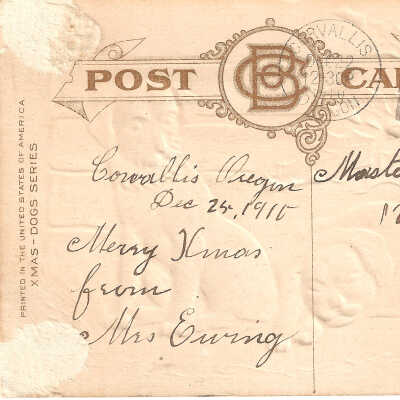 POST CA
CORVALLIS
PRINTED IN THE UNITED STATES OF AMERICA
XMAS-DOGS SERIES
Corvallis Oregon
Dec 25, 1910
Merry Xmas
from
Mrs Ewing
Maste